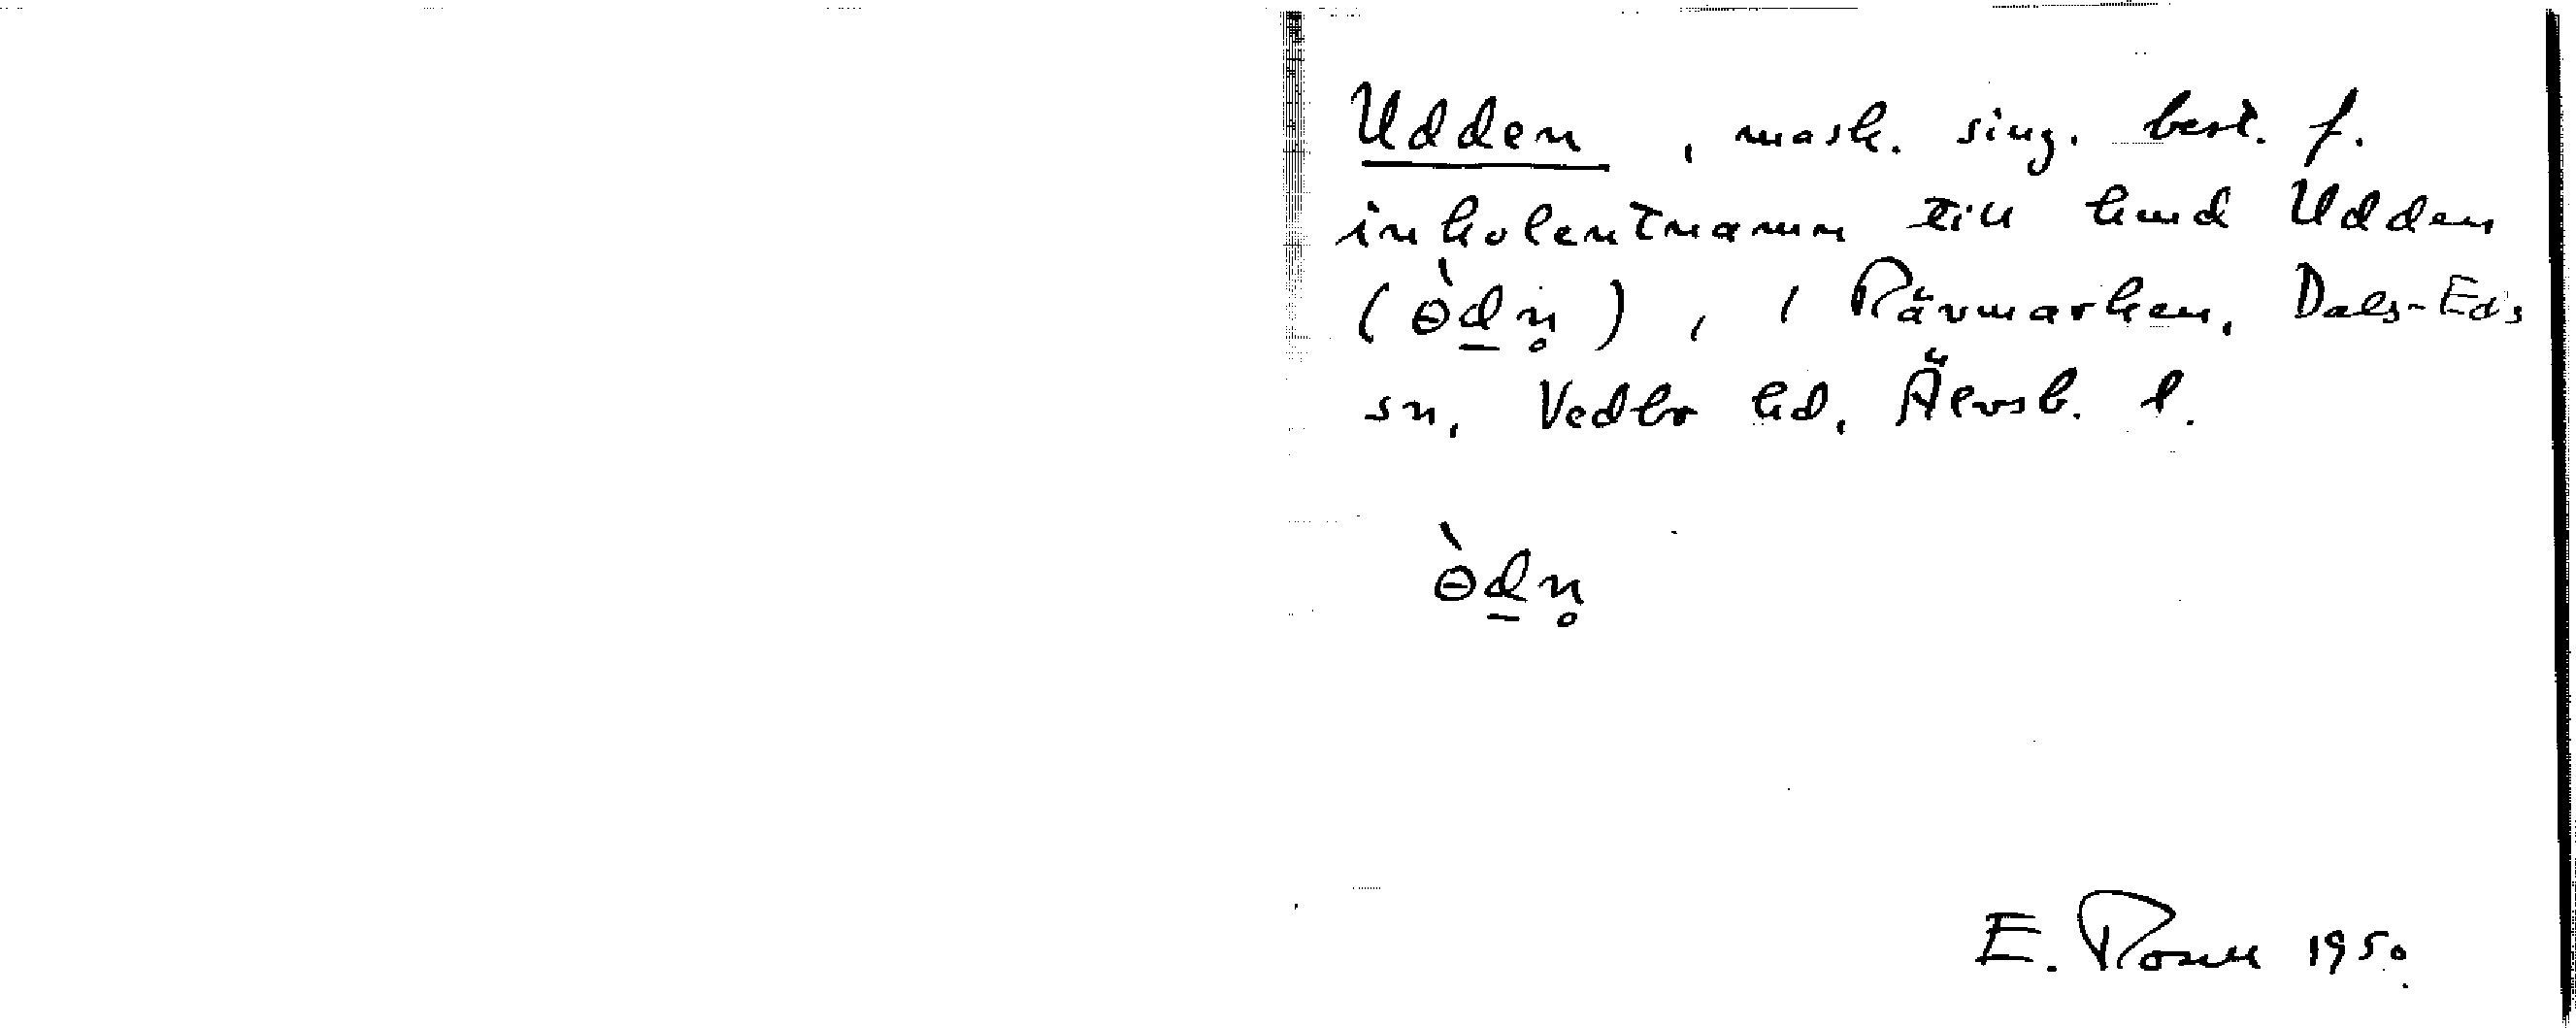 Udden, mask. sing. best. f.
inkolentnamn till hmd Udden
(ɵ̀d̲n̥), i Rävmarken, Dals-Eds
sn, Vedbo hd, Älvsb. l.
ɵ̀d̲n̥
E. Rosell 1950.